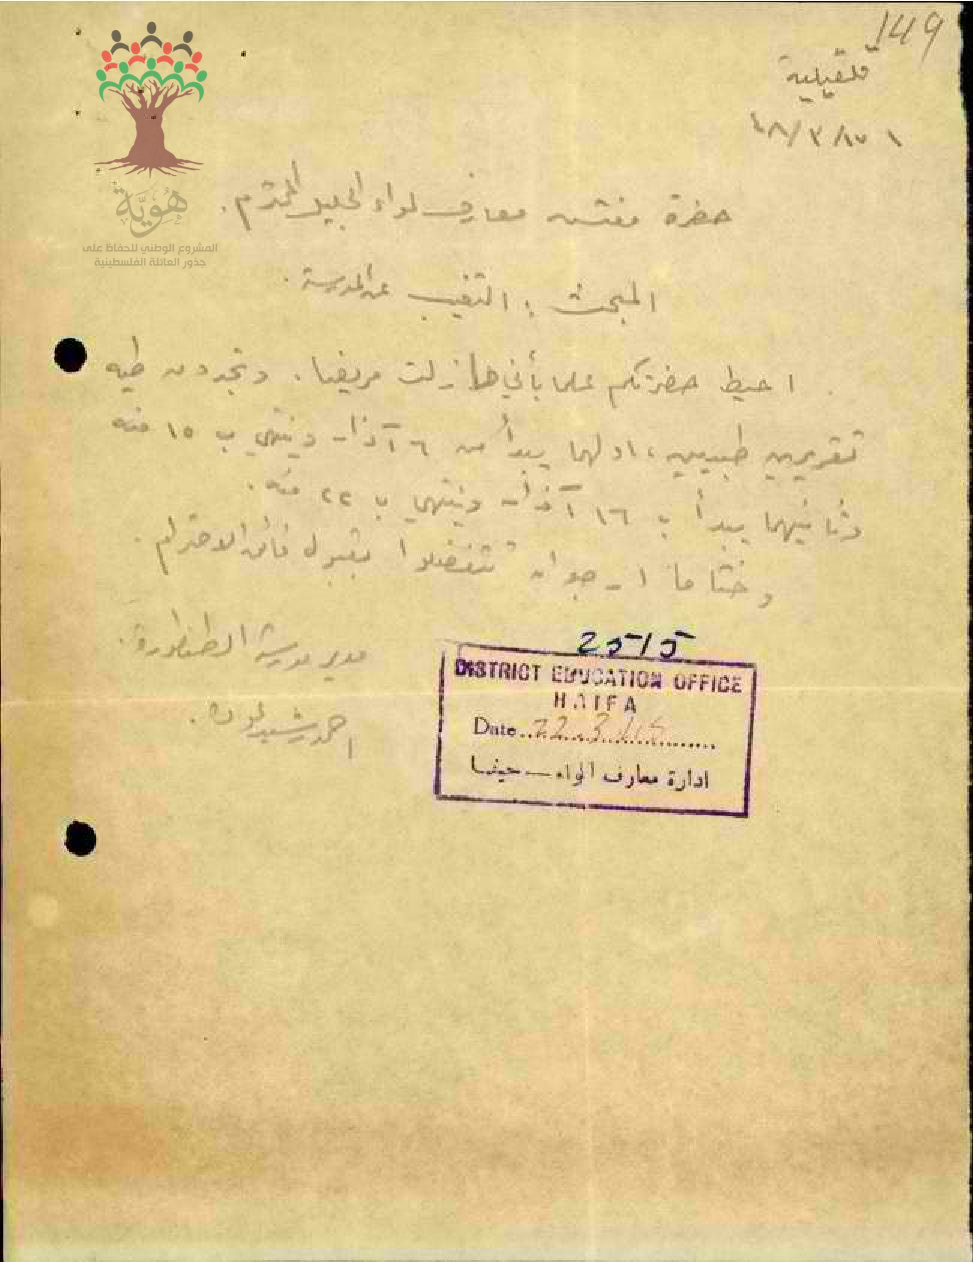 149
قلقيلية
حضرة مفتش معارف لواء الجليل المحترم.
المبحث: التغيب عن المدرسة.
احيط حضرتكم علما بأني ما زلت مريضا. وتجدون طيه
تقريرين طبيين، اولهما يبدأ من ٦ آذار وينتهي ب ١٥ منه
وثانيهما يبدأ ب ١٦ آذار وينتهي ب ٢٢ منه.
وختاما ارجو ان تتفضلوا بقبول فائق الاحترام.
مدير مدرسة الطنطورة.
احمد رشيد
2515
DISTRICT EDUCATION OFFICE
HAIFA
Date 22.3.48
ادارة معارف الواء - حيفا
هُوِيَّة
المشروع الوطني للحفاظ على
جذور العائلة الفلسطينية